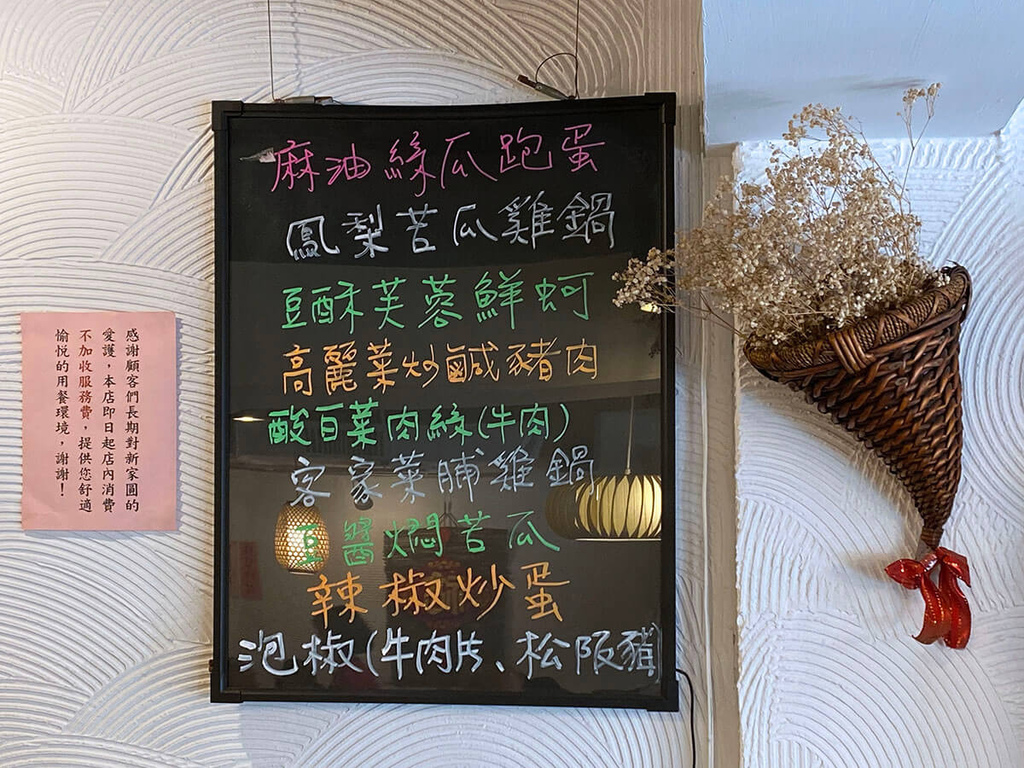 麻油絲瓜跑蛋
鳳梨苦瓜雞鍋
豆酥芙蓉鮮蚵
高麗菜炒鹹豬肉
酸白菜肉絲(牛肉)
客家菜脯雞鍋
豆醬燜苦瓜
辣椒炒蛋
泡椒(牛肉片、松阪豬)
感謝顧客們長期對新家圓的
愛護，本店即日起店內消費
不加收服務費，提供您舒適
愉悅的用餐環境，謝謝！